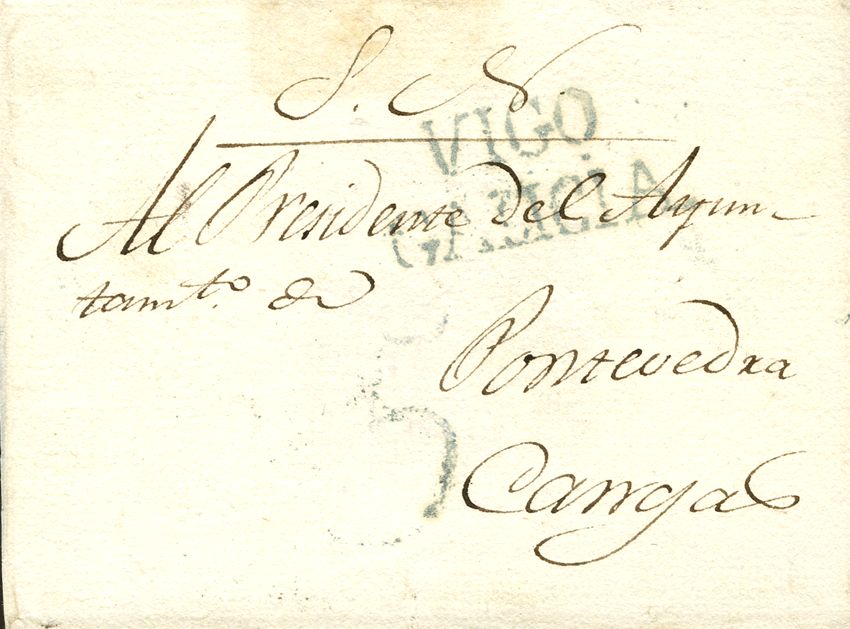 S. N.
VIGO
GALICIA
Al Presidente del Ayun-
tamto. de
Pontevedra
5
Cangas